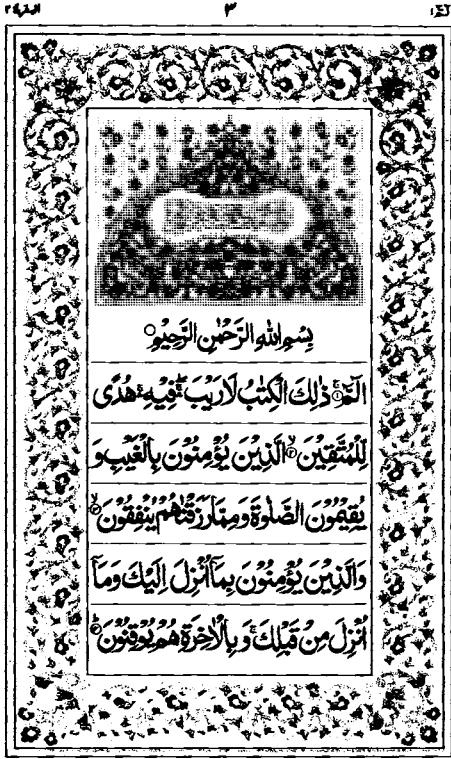 البقرة ٢ ٣ الٓمّٓ ١
بِسْمِ اللهِ الرَّحْمٰنِ الرَّحِيْمِ
الٓمّٓ ۚ﴿١﴾ ذٰلِكَ الْكِتٰبُ لَا رَيْبَ ۛۚ فِيْهِ ۛۚ هُدًى
لِّلْمُتَّقِيْنَ ۙ﴿٢﴾ الَّذِيْنَ يُؤْمِنُوْنَ بِالْغَيْبِ وَ
يُقِيْمُوْنَ الصَّلٰوةَ وَمِمَّا رَزَقْنٰهُمْ يُنْفِقُوْنَ ۙ﴿٣﴾
وَالَّذِيْنَ يُؤْمِنُوْنَ بِمَاۤ اُنْزِلَ اِلَيْكَ وَمَاۤ
اُنْزِلَ مِنْ قَبْلِكَ ۚ وَبِالْاٰخِرَةِ هُمْ يُوْقِنُوْنَ ؕ﴿٤﴾